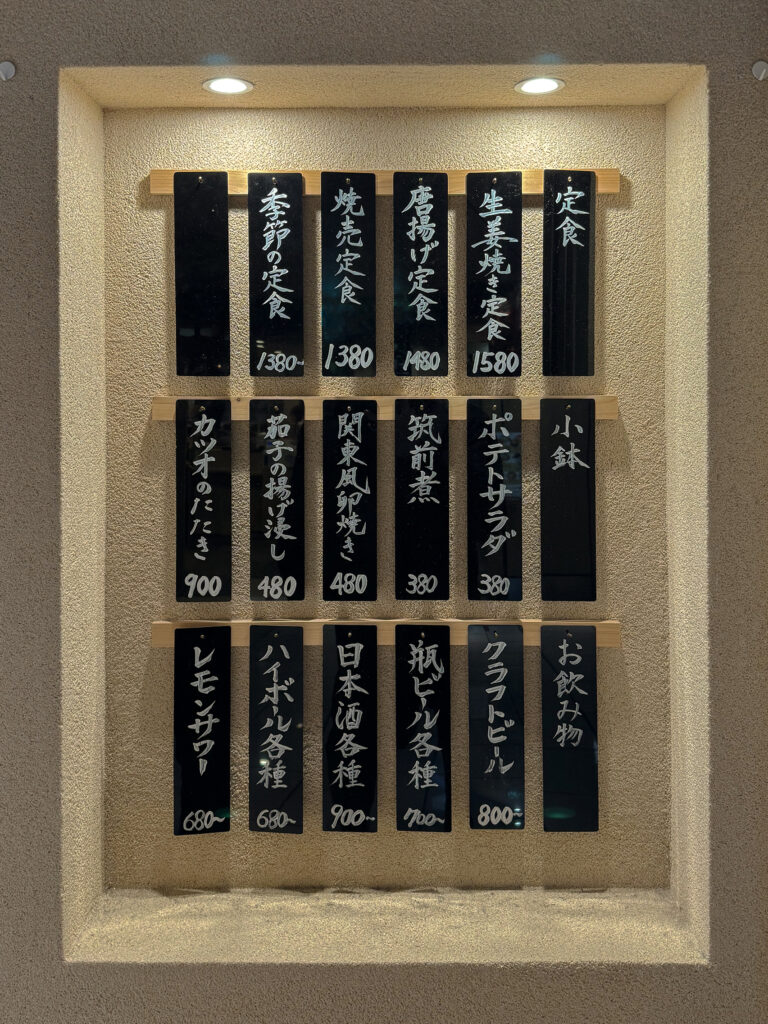 定食
生姜焼き定食
1580
唐揚げ定食
1480
焼売定食
1380
季節の定食
1380~
小鉢
ポテトサラダ
380
筑前煮
380
関東風卵焼き
480
茄子の揚げ浸し
480
カツオのたたき
900
お飲み物
クラフトビール
800~
瓶ビール各種
700~
日本酒各種
900~
ハイボール各種
680~
レモンサワー
680~